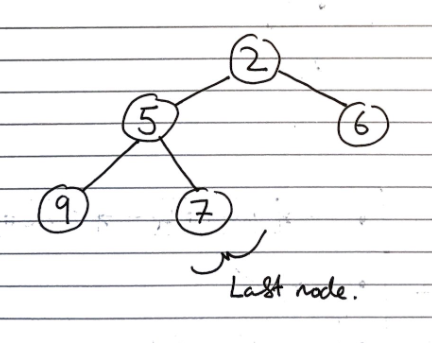 2
5 6
9 7
Last node.